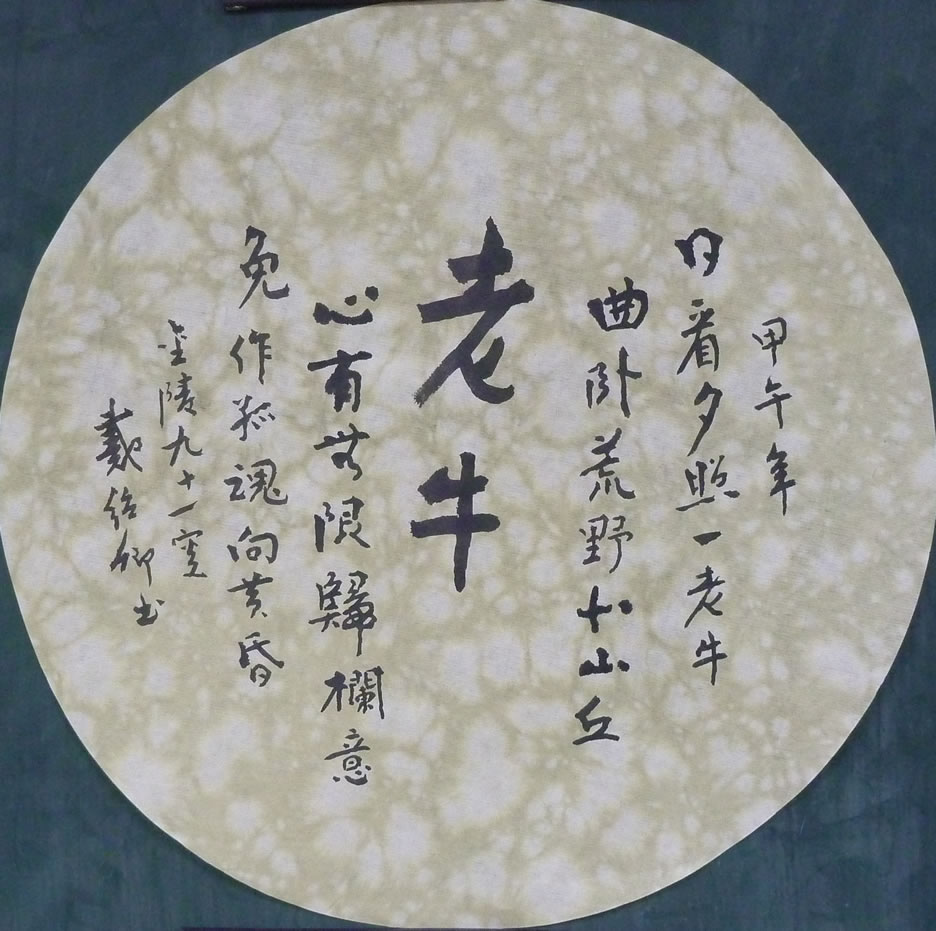 甲午年
日看夕照一老牛
曲卧荒野山丘
老牛
心有無限歸欄意
免作孤魂向黄昏
金陵九十一叟
戴绍卿书